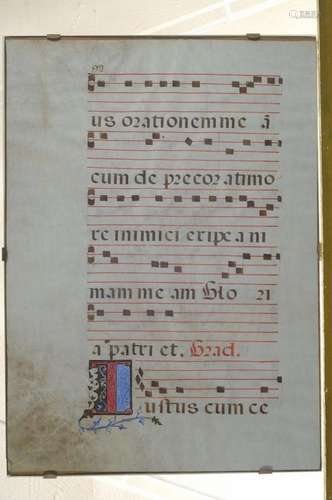 us orationem me ā
cum de precor a timo
re inimici eripe ani
mam me am Glo ri
a patri et. Grad.
Iustus cum ce